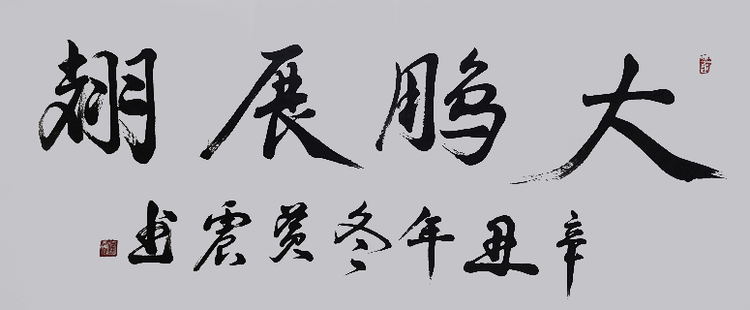 大鹏展翅
辛丑年冬黄震书